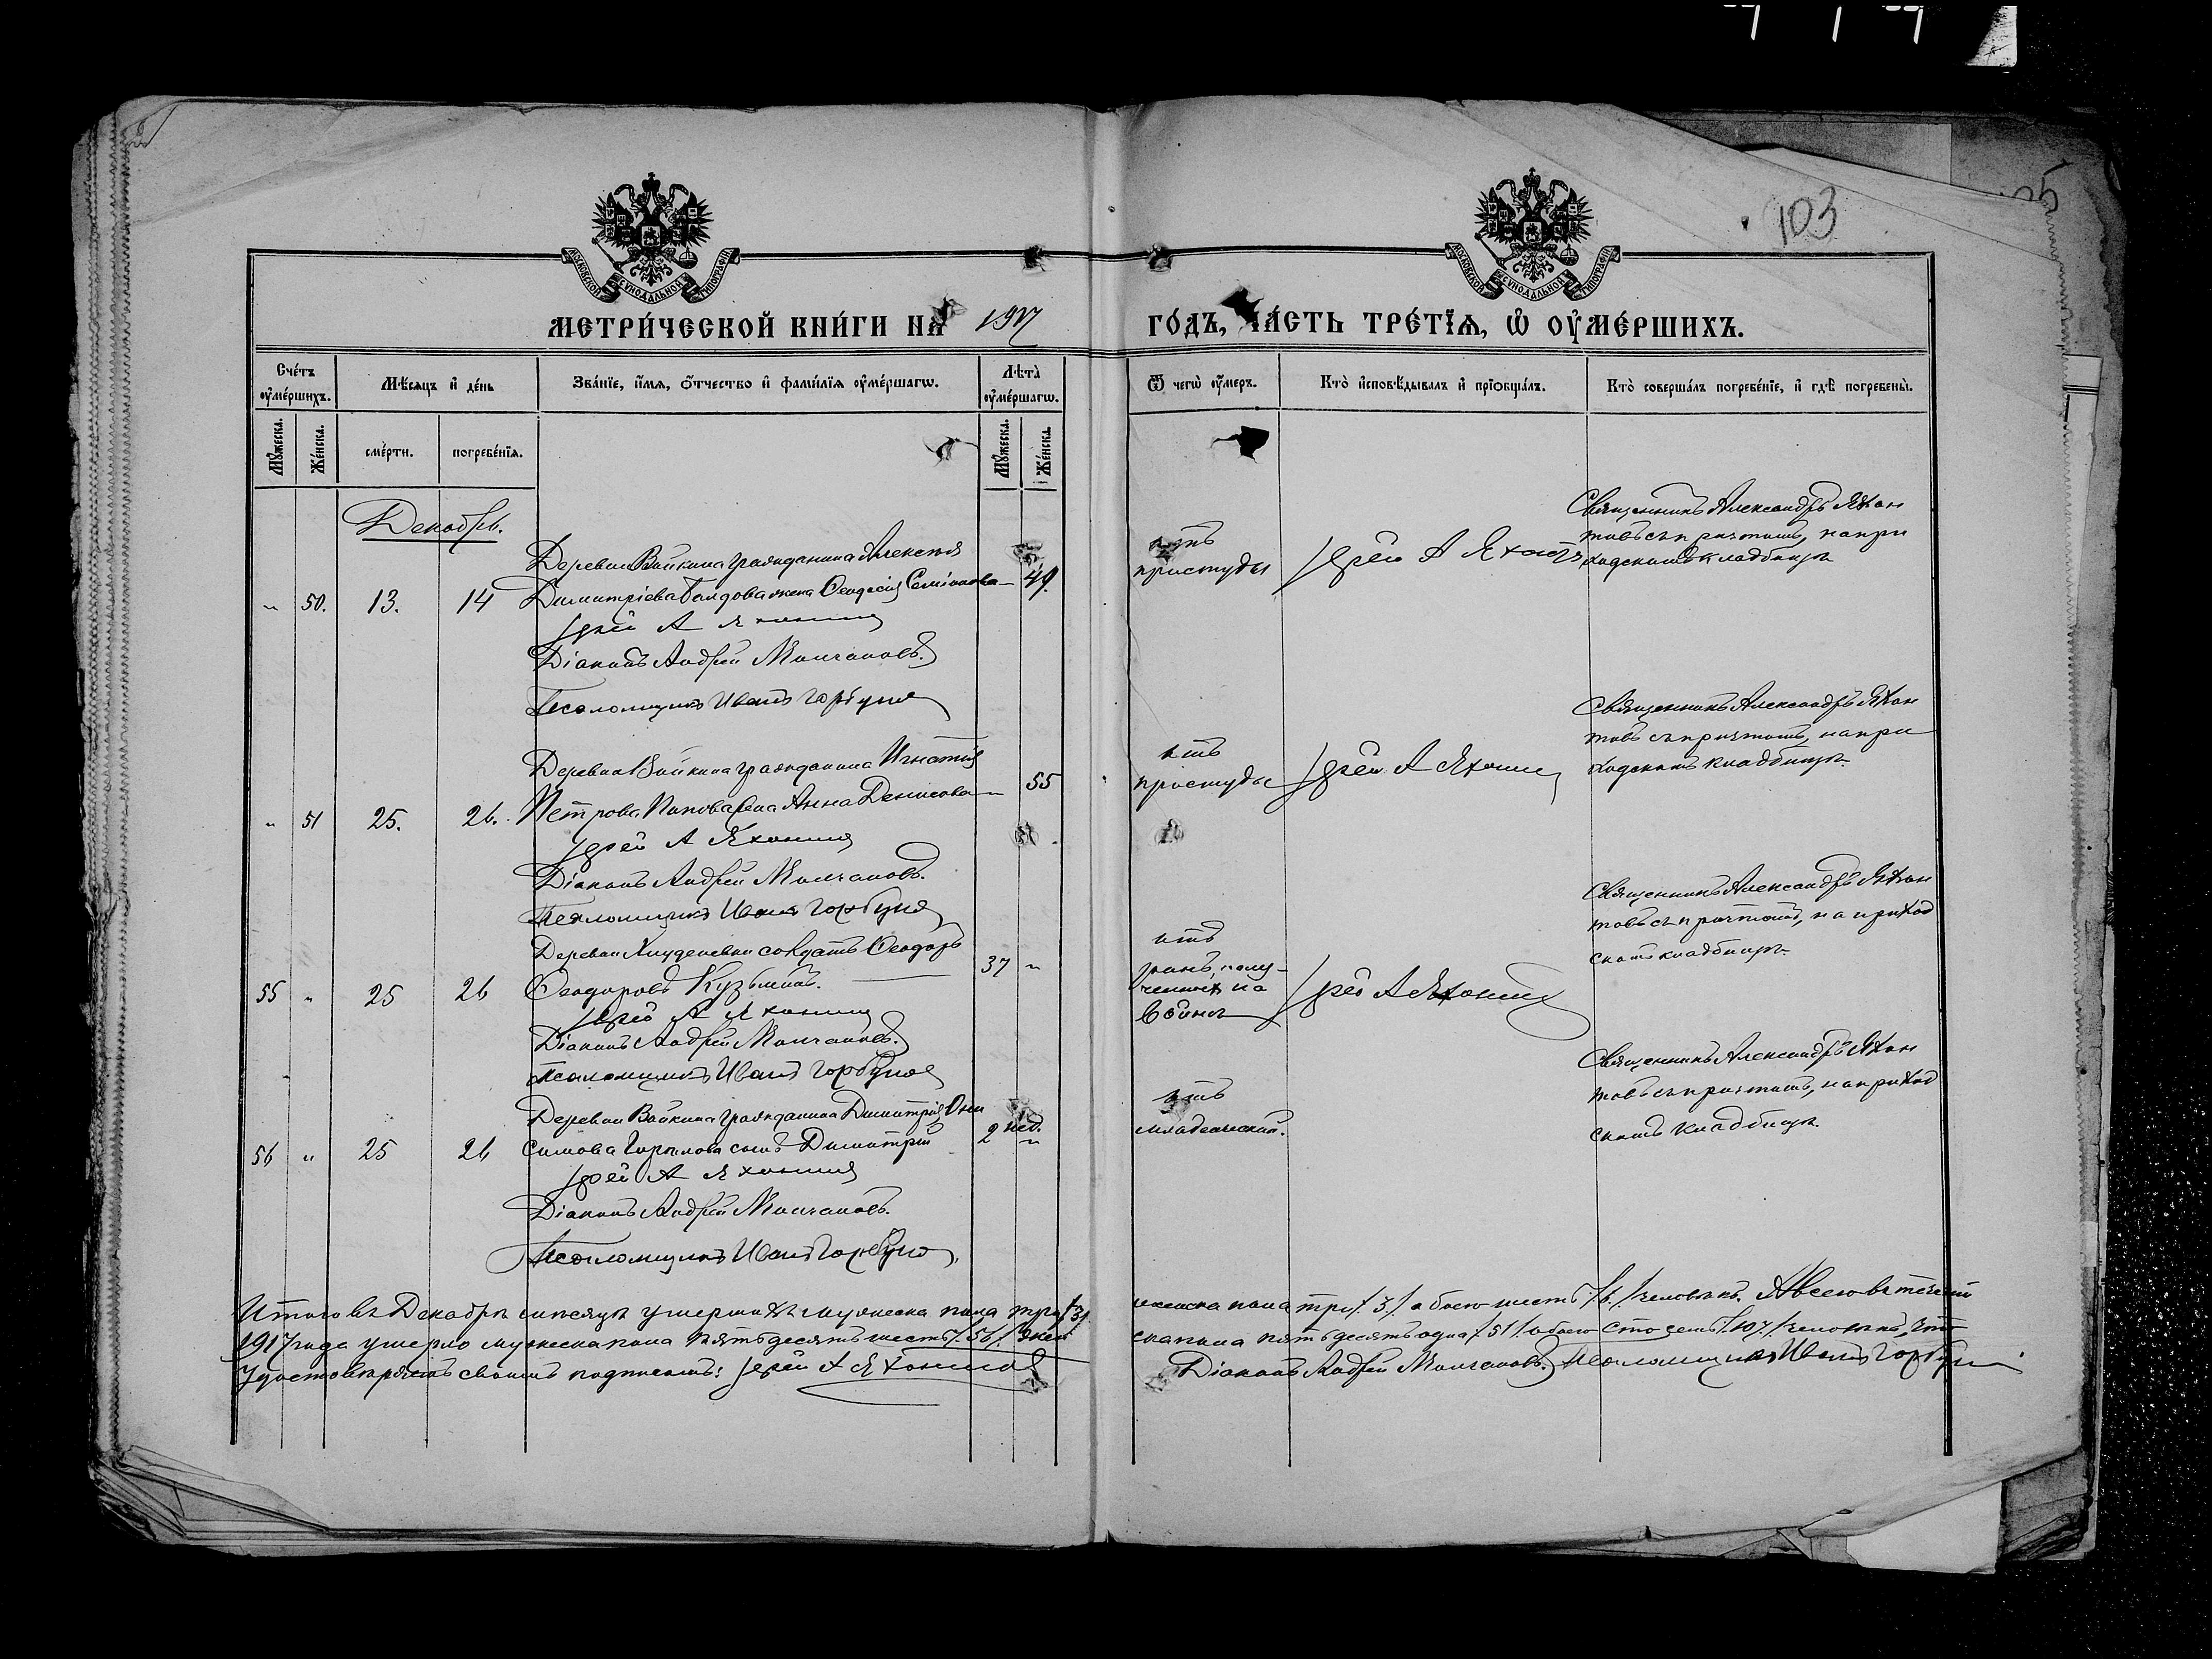 103
МОСКОВСКОЙ СѴНОДАЛЬНОЙ ТИПОГРАФІИ
МОСКОВСКОЙ СѴНОДАЛЬНОЙ ТИПОГРАФІИ
МЕТРИ́ЧЕСКОЙ КНИ́ГИ НА 1917 ГО́ДЪ, ЧА́СТЬ ТРЕ́ТЇѦ, Ѡ҆ ОУ҆МЕ́РШИХЪ.
Сче́тъ оу҆ме́ршихъ.
Мѣ́сяцъ и҆ де́нь
Зва́нїе, и҆́мѧ, ѻ҆́тчество и҆ фами́лїѧ оу҆ме́ршагѡ.
Лѣта̀ оу҆ме́ршагѡ.
Ѿ чегѡ̀ оу҆́меръ.
Кто̀ и҆сповѣ́дывалъ и҆ прїѡбща́лъ.
Кто̀ соверша́лъ погребе́нїе, и҆ гдѣ̀ погребены̀.
Мꙋ́жеска.
Же́нска.
сме́рти.
погребе́нїѧ.
Мꙋ́жеска.
Же́нска.
Декабрь.
Деревни Войкина гражданина Алексѣя
" 50. 13. 14 Димитріева жена Ѳеодосія Симіонова — 49.
Іерей А Яхонтов
Діаконъ Андрей Молчановъ.
Псаломщикъ Иванъ Горбунов
отъ
простуды
Іерей А Яхонтов
Священникъ Александръ Яхон
товъ съ причтомъ, на при
ходскомъ кладбищѣ
Деревни Войкина гражданина Игнатія
" 51 25. 26. Петрова Попова жена Анна Денисова — 55
Іерей А Яхонтов
Діаконъ Андрей Молчановъ.
Псаломщикъ Иванъ Горбунов
отъ
простуды
Іерей А Яхонтов
Священникъ Александръ Яхон
товъ съ причтомъ, на при
ходскомъ кладбищѣ
Деревни солдатъ Ѳеодоръ
55 " 25 26 Ѳеодоровъ Кузьминъ. — 37 "
Іерей А Яхонтов
Діаконъ Андрей Молчановъ.
Псаломщикъ Иванъ Горбунов
отъ
ранъ, полу-
ченныхъ на
войнѣ
Іерей А Яхонтов
Священникъ Александръ Яхон
товъ съ причтомъ, на приход
скомъ кладбищѣ
Деревни Войкина гражданина Димитрія Они
56 " 25 26 симова сынъ Димитрій 2 нед. "
Іерей А Яхонтов
Діаконъ Андрей Молчановъ.
Псаломщикъ Иванъ Горбунов
отъ
младенческой.
Священникъ Александръ Яхон
товъ съ причтомъ, на приход
скомъ кладбищѣ
Итого въ Декабрѣ мѣсяцѣ умершихъ мужеска пола три /3/ женска пола три /3/ а обоего шесть /6/ человѣкъ. А всего въ теченіи
1917 года умерло мужеска пола пятьдесятъ шесть /56/ жен ска пола пятьдесятъ одна /51/ обоего сто семь /107/ человѣкъ, что
удостовѣряемъ своимъ подписомъ: Іерей А Яхонтов Діаконъ Андрей Молчановъ. Псаломщикъ Иванъ Горбунов